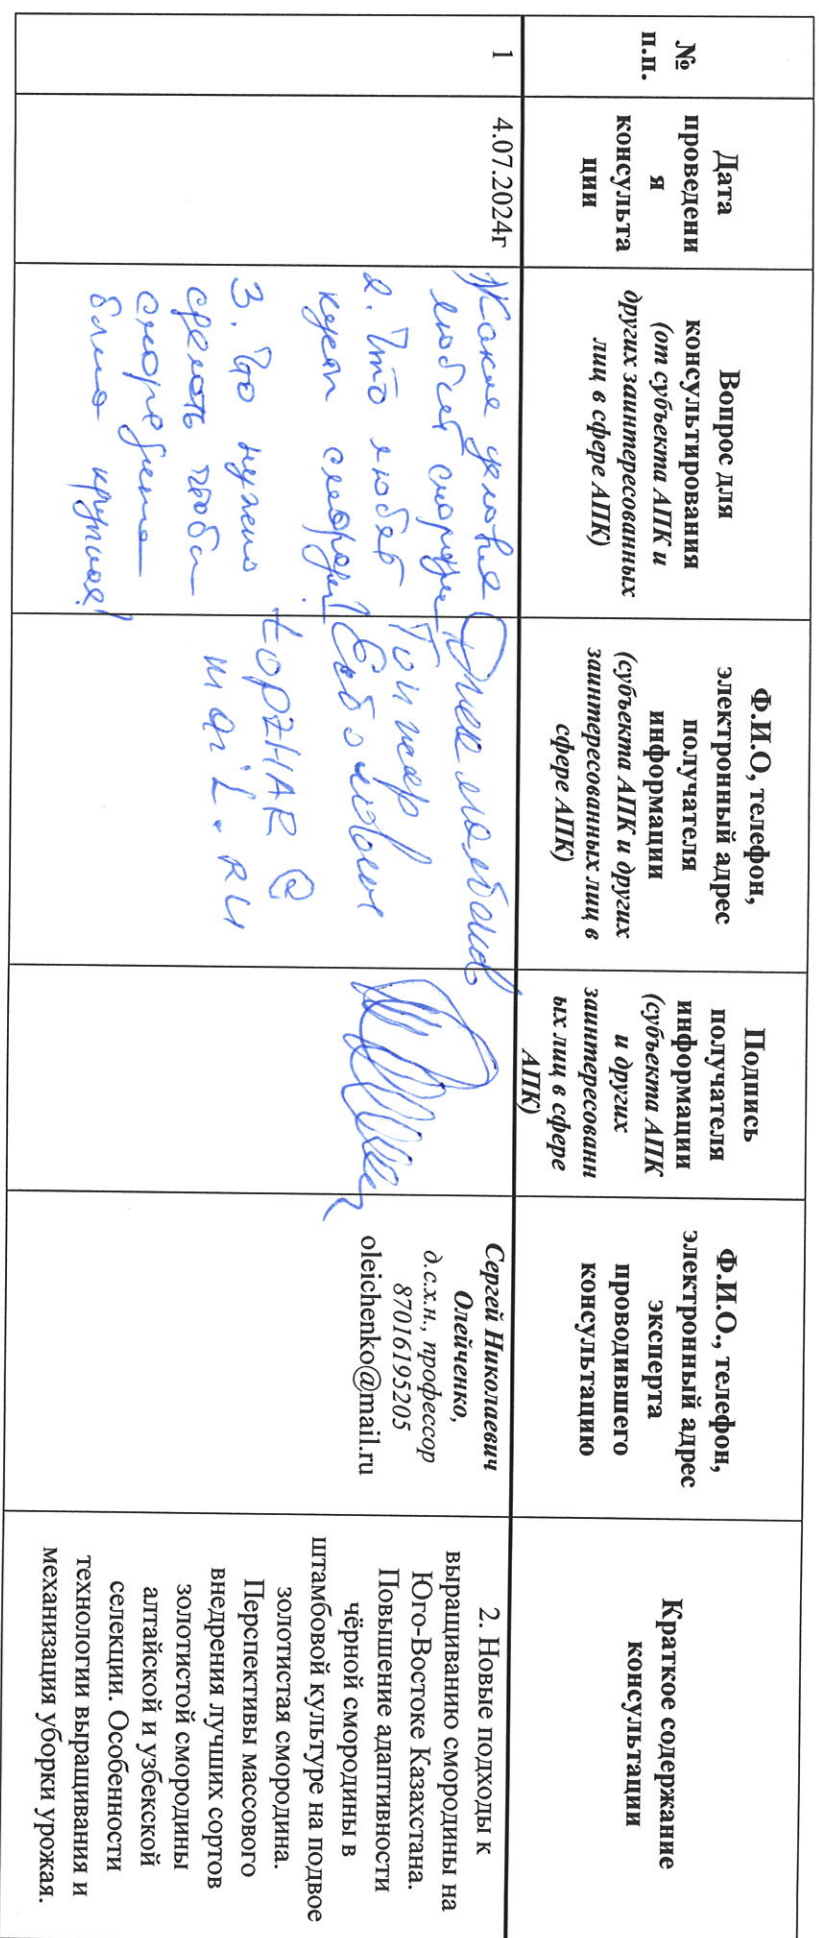 №
п.п.
Дата
проведени
я
консульта
ции
Вопрос для
консультирования
(от субъекта АПК и
других заинтересованных
лиц в сфере АПК)
Ф.И.О, телефон,
электронный адрес
получателя
информации
(субъекта АПК и других
заинтересованных лиц в
сфере АПК)
Подпись
получателя
информации
(субъекта АПК
и других
заинтересованн
ых лиц в сфере
АПК)
Ф.И.О., телефон,
электронный адрес
эксперта
проводившего
консультацию
Краткое содержание
консультации
1
4.07.2024г
Какие условия
любит
2. Что любит
куст
3. Что нужно
сделать чтобы
смородина
была крупная!
mail.RU
Сергей Николаевич
Олейченко,
д.с.х.н., профессор
87016195205
oleichenko@mail.ru
2. Новые подходы к
выращиванию смородины на
Юго-Востоке Казахстана.
Повышение адаптивности
чёрной смородины в
штамбовой культуре на подвое
золотистая смородина.
Перспективы массового
внедрения лучших сортов
золотистой смородины
алтайской и узбекской
селекции. Особенности
технологии выращивания и
механизация уборки урожая.